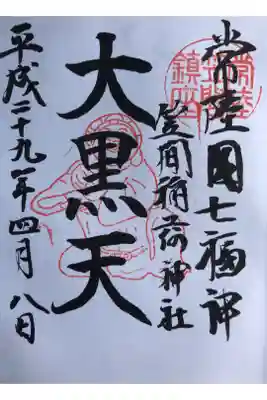 常陸國七福神
常陸
笠間
鎮座
笠間稲荷神社
大黒天
平成二十九年四月八日